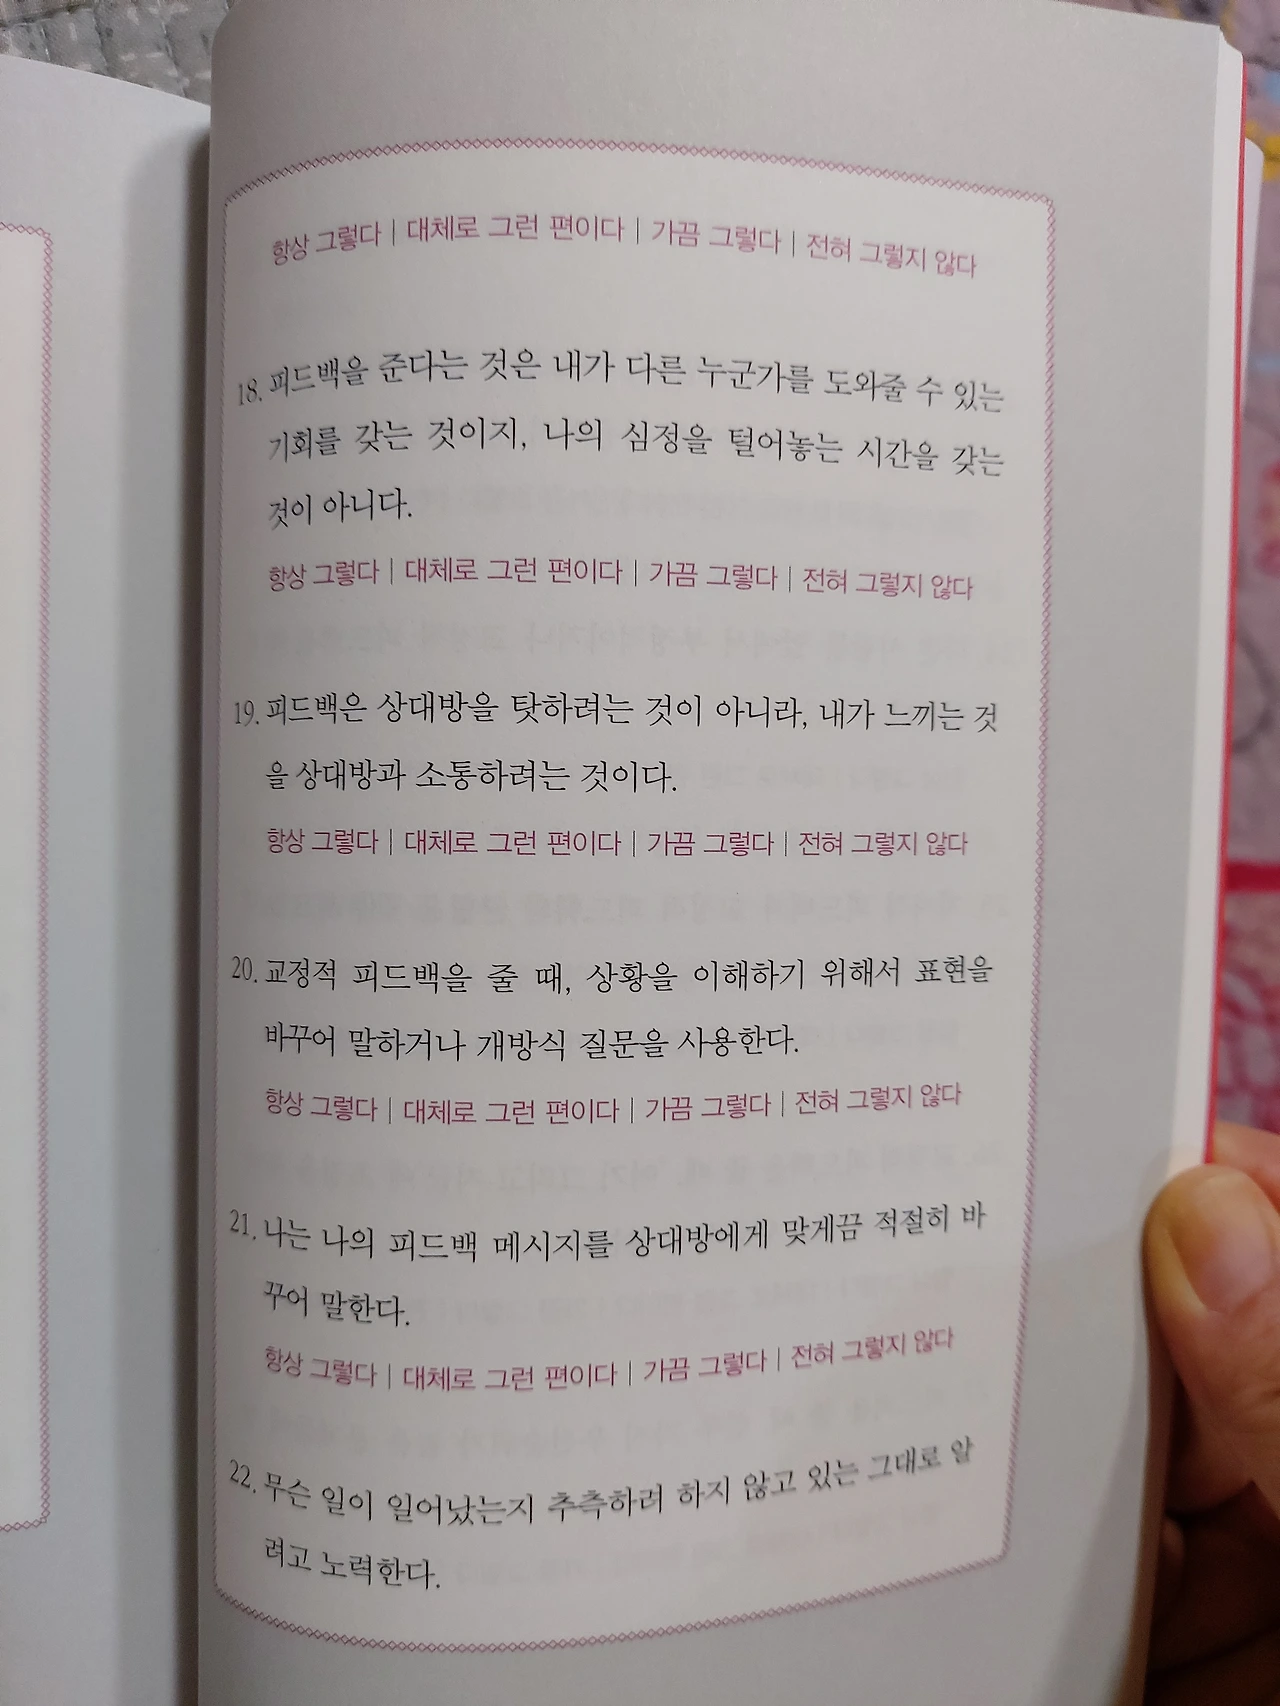 항상 그렇다 | 대체로 그런 편이다 | 가끔 그렇다 | 전혀 그렇지 않다
18. 피드백을 준다는 것은 내가 다른 누군가를 도와줄 수 있는
기회를 갖는 것이지, 나의 심정을 털어놓는 시간을 갖는
것이 아니다.
항상 그렇다 | 대체로 그런 편이다 | 가끔 그렇다 | 전혀 그렇지 않다
19. 피드백은 상대방을 탓하려는 것이 아니라, 내가 느끼는 것
을 상대방과 소통하려는 것이다.
항상 그렇다 | 대체로 그런 편이다 | 가끔 그렇다 | 전혀 그렇지 않다
20. 교정적 피드백을 줄 때, 상황을 이해하기 위해서 표현을
바꾸어 말하거나 개방식 질문을 사용한다.
항상 그렇다 | 대체로 그런 편이다 | 가끔 그렇다 | 전혀 그렇지 않다
21. 나는 나의 피드백 메시지를 상대방에게 맞게끔 적절히 바
꾸어 말한다.
항상 그렇다 | 대체로 그런 편이다 | 가끔 그렇다 | 전혀 그렇지 않다
22. 무슨 일이 일어났는지 추측하려 하지 않고 있는 그대로 알
려고 노력한다.